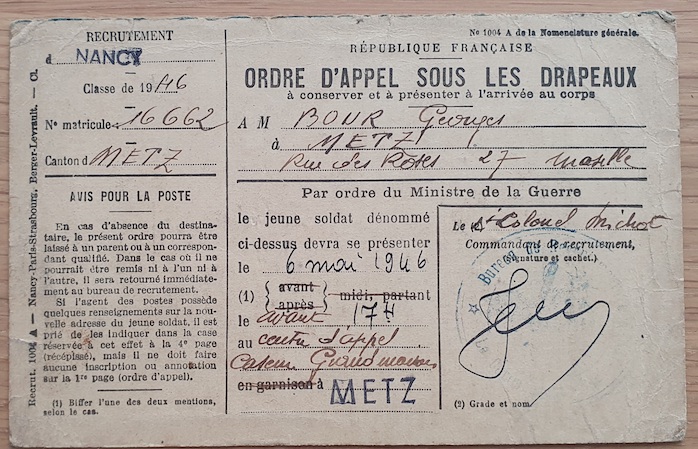 RECRUTEMENT
d NANCY
Classe de 1946
No matricule 16662
Canton d METZ
AVIS POUR LA POSTE
En cas d'absence du destina-
taire, le présent ordre pourra être
laissé à un parent ou à un correspon-
dant qualifié. Dans le cas où il ne
pourrait être remis ni à l'un ni à
l'autre, il sera retourné immédiate-
ment au bureau de recrutement.
Si l'agent des postes possède
quelques renseignements sur la nou-
velle adresse du jeune soldat, il est
prié de les indiquer dans la case
réservée à cet effet à la 4e page
(récépissé), mais il ne doit faire
aucune inscription ou annotation
sur la 1re page (ordre d'appel).
(1) Biffer l'une des deux mentions,
selon le cas.
Recrut. 1004 A — Nancy-Paris-Strasbourg, Berger-Levrault. — Cl.
No 1004 A de la Nomenclature générale.
RÉPUBLIQUE FRANÇAISE
ORDRE D'APPEL SOUS LES DRAPEAUX
à conserver et à présenter à l'arrivée au corps
A M BOUR Georges
à METZ
Rue des Roses 27 Moselle
Par ordre du Ministre de la Guerre
le jeune soldat dénommé
ci-dessus devra se présenter
le 6 mai 1946
(1) avant
après midi, partant
le avant 17H
au centre d'appel
Caserne
en garnison à METZ
Le Lt Colonel Michot
Commandant de recrutement,
(signature et cachet.)
Bureau de
(2) Grade et nom